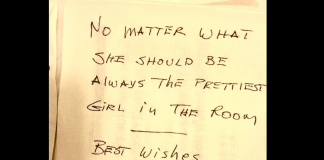 No matter what
she should be
always the prettiest
girl in the room
Best wishes